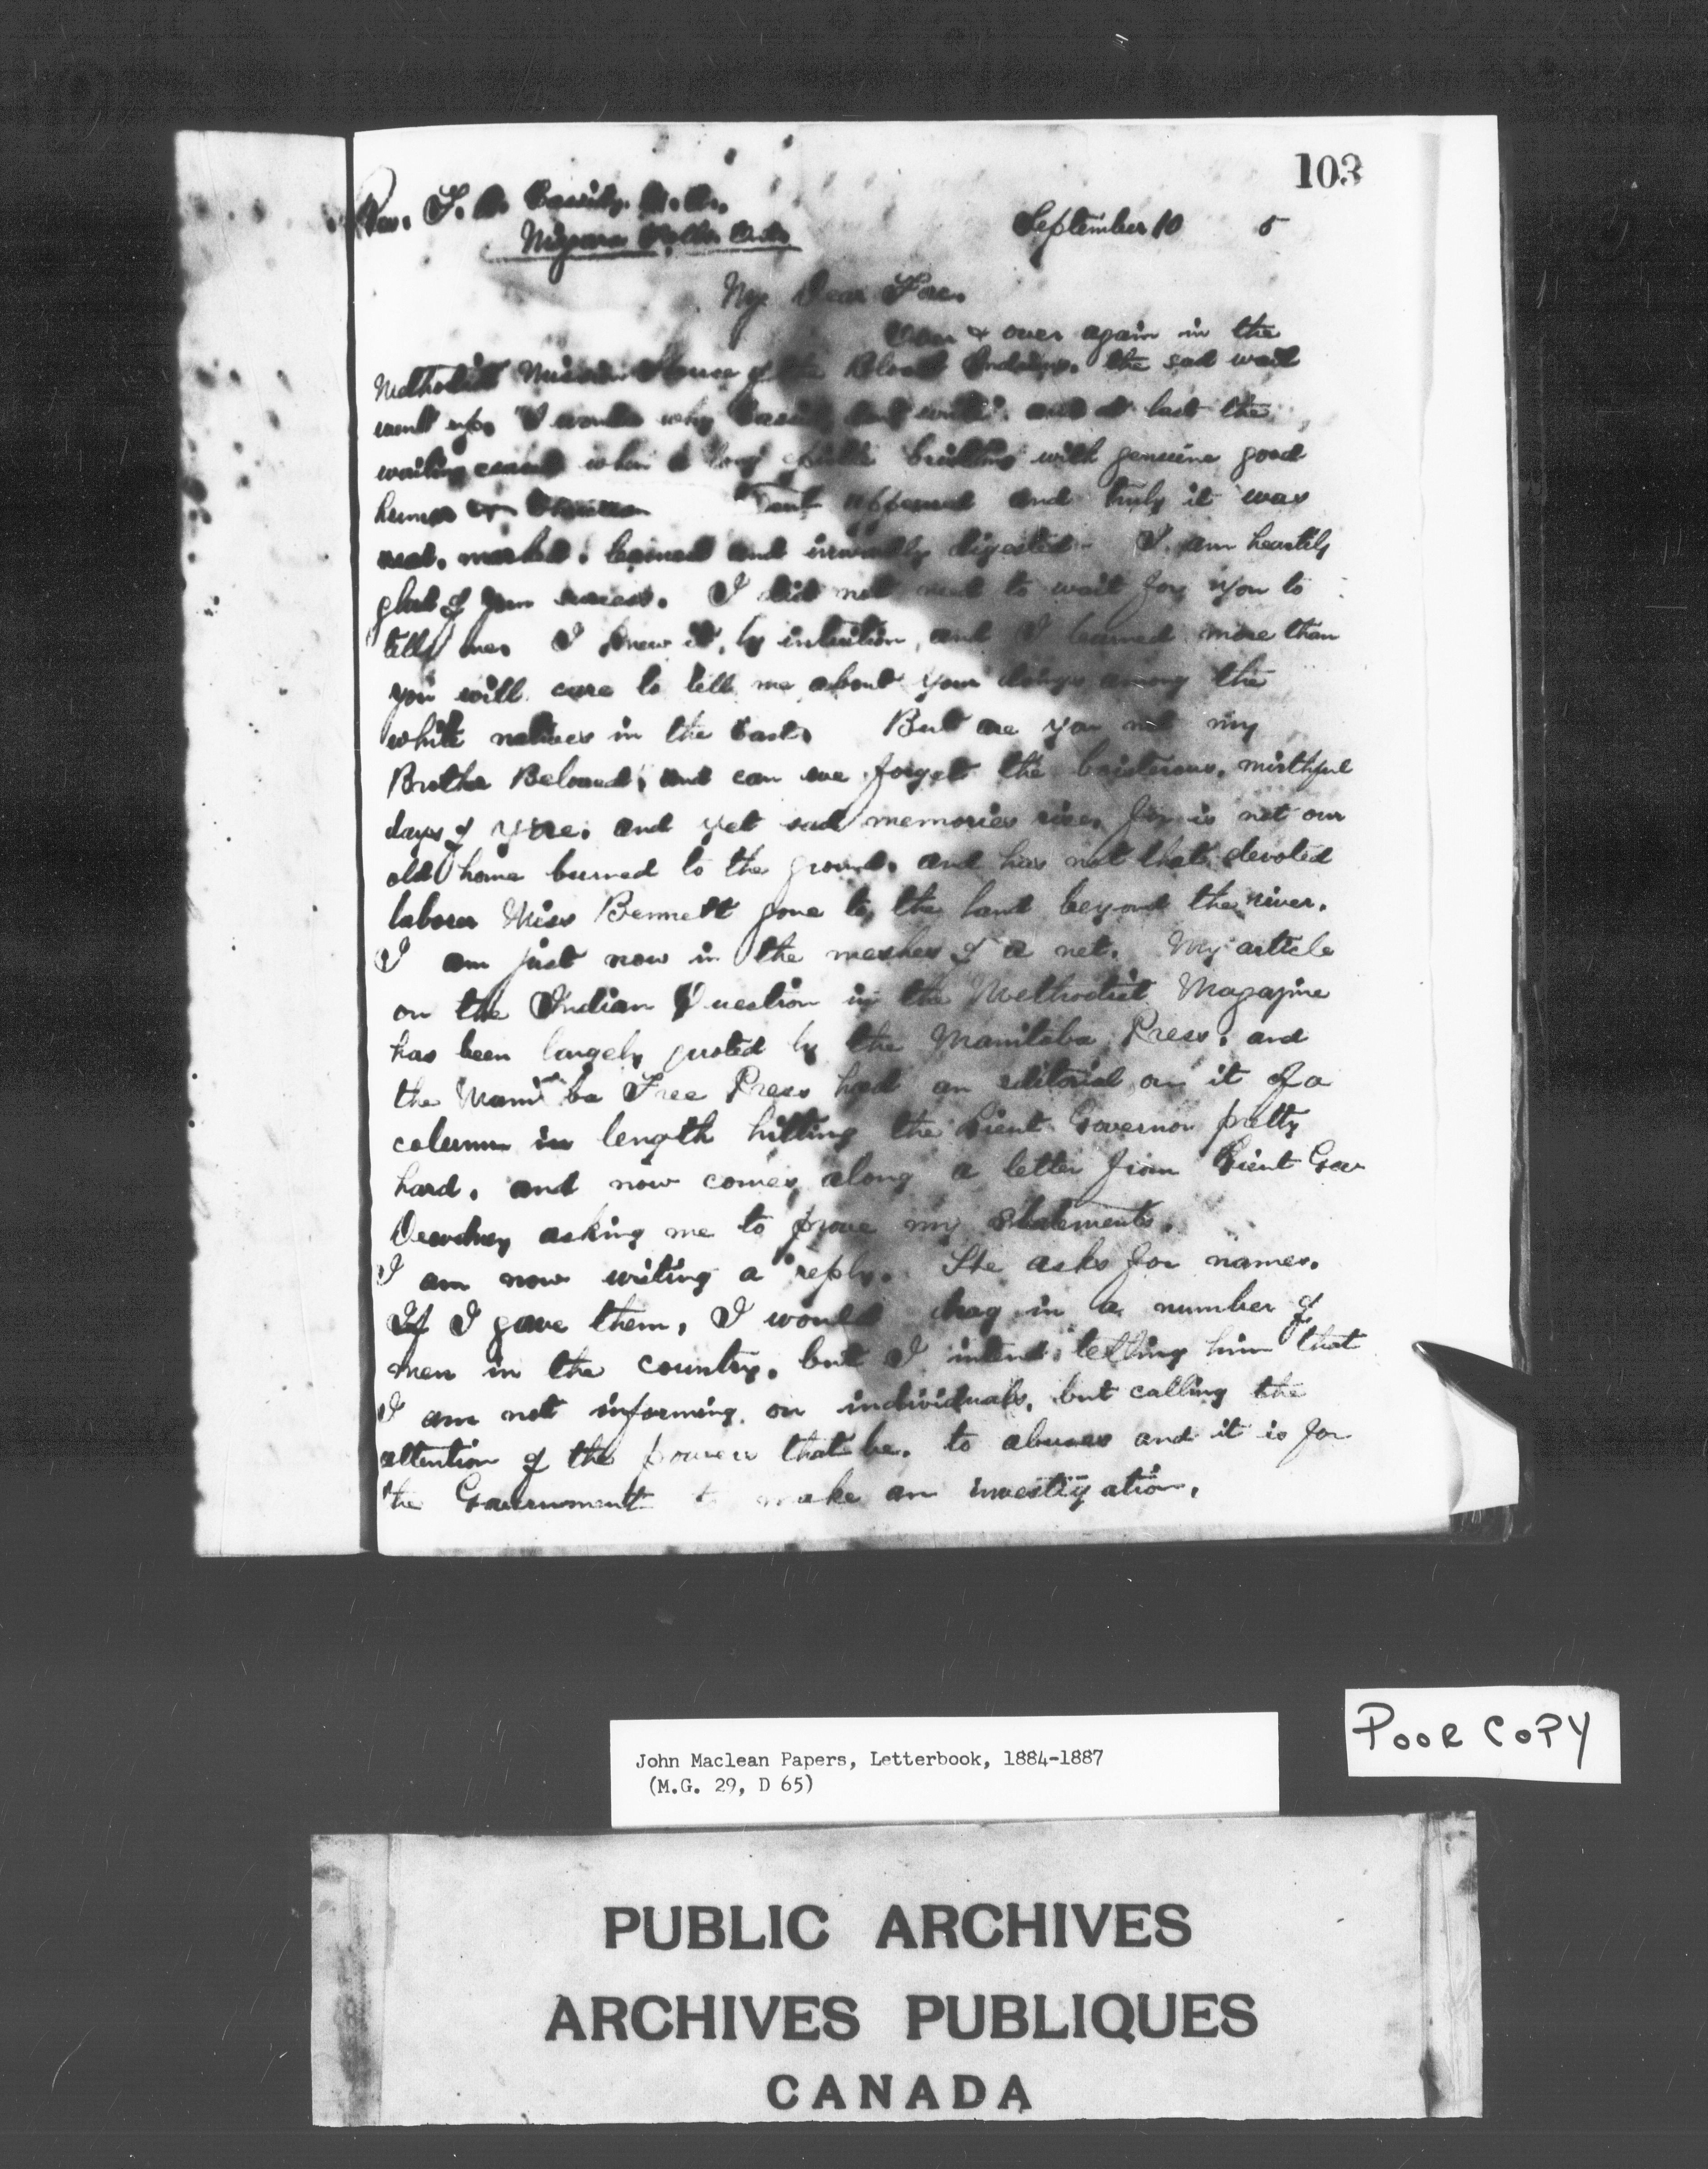 103
Rev. F. A. Cassidy. M. A.,
Niagara Falls. Ont.
September 10 5
My Dear Frae.
Over & over again in the
Methodist Mission House of the Blood Indians, the sad wail
went up, "I wonder why Cassidy don't write". and at last the
wailing ceased when a long epistle bristling with genuine good
humor appeared and truly it was
read, marked, learned and inwardly digested. I am heartily
glad of your success. I did not need to wait for you to
tell me. I knew it, by intuition, and I learned more than
you will care to tell me about your doings among the
white natives in the East. But are you not my
Brother Beloved, and can we forget the boisterous, mirthful
days of yore, and yet sad memories rise, for is not our
old home burned to the ground, and has not that devoted
laborer Miss Bennett gone to, the land beyond the river.
I am just now in the meshes of a net. My article
on the Indian Question in the Methodist Magazine
has been largely quoted by the Manitoba Press, and
the Manitoba Free Press had an editorial on it of a
column in length hitting the Lieut Governor pretty
hard, and now comes along a letter from Lieut Gov
Dewdney asking me to prove my statements.
I am now writing a reply. He asks for names.
If I gave them, I would drag in a number of
men in the country, but I intend telling him that
I am not informing on individuals, but calling the
attention of the powers that be, to abuses and it is for
the Government to make an investigation.
POOR COPY
John Maclean Papers, Letterbook, 1884-1887
(M.G. 29, D 65)
PUBLIC ARCHIVES
ARCHIVES PUBLIQUES
CANADA